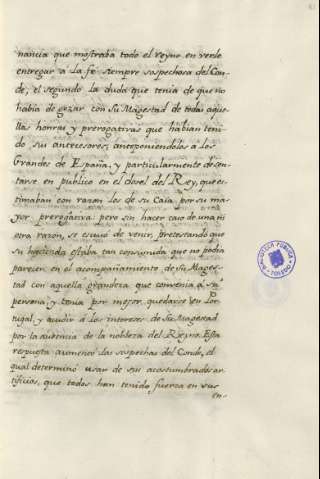 nancia que mostraba todo el reyno en verle
entregar à la fe siempre sospechosa del Con-
de; el segundo la duda que tenia de que no
habia de gozar con Su Magestad de todas aque-
llas honras y prerogativas que habian teni-
do sus antecesores, anteponiendolos a los
Grandes de España, y particularmente desen-
tarse en publico en el dosel del Rey, que es-
timaban con razon los de su Casa por su ma-
yor prerogativa pero sin hacer caso de una ni
otra razon, se escusó de venir, pretestando que
su hacienda estaba tan consumida que no podia
parecer en el acompañamiento de Su Mages-
tad con aquella grandeza que convenia á su
persona, y tenia por mejor quedarse en Por-
tugal, y acudir á los intereses de Su Magestad
por la ausencia de la nobleza del Reyno. Esta
respuesta aumentó las sospechas del Conde, el
qual determinó usar de sus acostumbradas ar-
tificios, que todos han tenido fuerza en sus
en-
BIBLIOTECA PUBLICA
TOLEDO